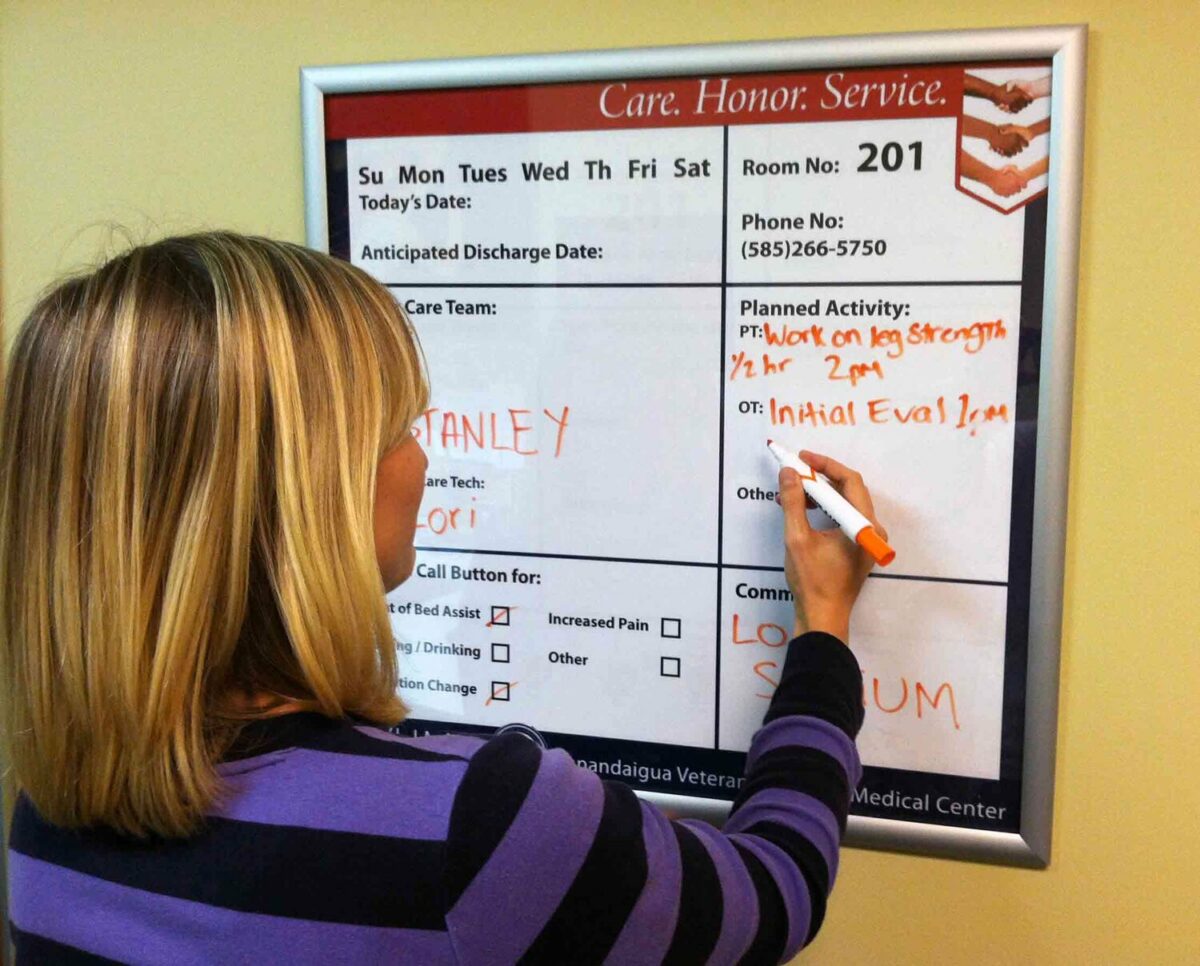 Care. Honor. Service.
Su Mon Tues Wed Th Fri Sat
Today's Date:
Anticipated Discharge Date:
Room No: 201
Phone No:
(585)266-5750
Care Team:
STANLEY
Care Tech:
Lori
Planned Activity:
PT: Work on leg Strength
1/2 hr 2pm
OT: Initial Eval 1pm
Other
Call Button for:
of Bed Assist
Drinking
Change
Increased Pain
Other
Comm
LO
S IUM
nandaigua Veteran
Medical Center